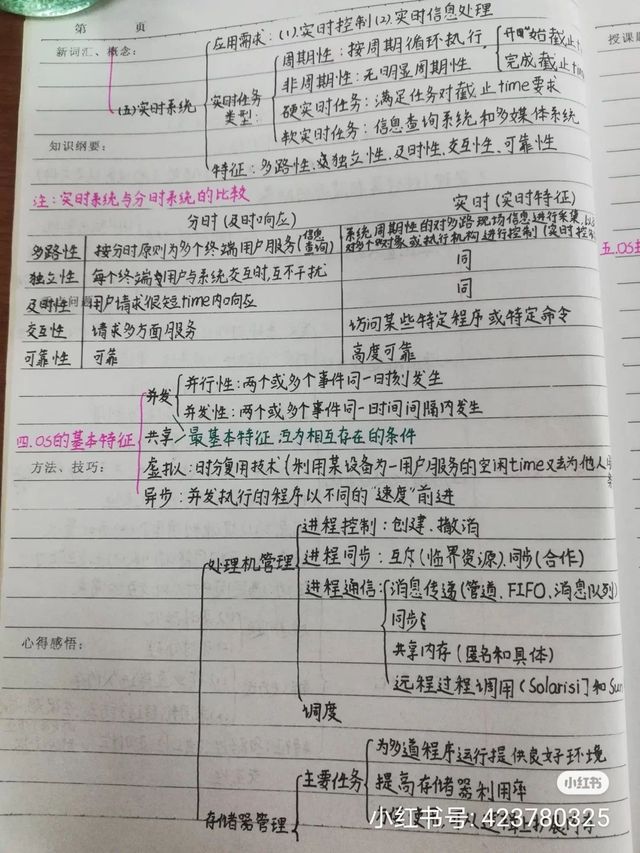 第 页
授课
新词汇、概念:
应用需求:(1).实时控制(2).实时信息处理
(五)实时系统
实时任务类型:
周期性:按周期循环执行,
开始截止
完成截止
非周期性:无明显周期性
硬实时任务:满足任务对截止time要求
软实时任务:信息查询系统和多媒体系统
知识纲要:
特征:多路性、独立性、及时性、交互性、可靠性
注:实时系统与分时系统的比较
分时(及时响应) 实时(实时特征)
多路性 按分时原则为多个终端用户服务(信息查询) 系统周期性的对多路现场信息进行采集,以及对多个对象或执行机构进行控制(实时控
独立性 每个终端用户与系统交互时,互不干扰 同
及时性 用户请求很短time内响应 同
交互性 请求多方面服务 访问某些特定程序或特定命令
可靠性 可靠 高度可靠
五.OS
四.OS的基本特征
并发
并行性:两个或多个事件同一时刻发生
并发性:两个或多个事件同一时间间隔内发生
共享
最基本特征,互为相互存在的条件
方法、技巧:
虚拟:时分复用技术(利用某设备为一用户服务的空闲time又去为他人
异步:并发执行的程序以不同的"速度"前进
处理机管理
进程控制:创建、撤消
进程同步:互斥(临界资源)、同步(合作)
进程通信:
消息传递(管道、FIFO、消息队列)
同步
共享内存(匿名和具体)
远程过程调用(Solaris门和Sun
心得感悟:
调度
存储器管理
主要任务
为多道程序运行提供良好环境
提高存储器利用率
小红书
小红书号:423780325